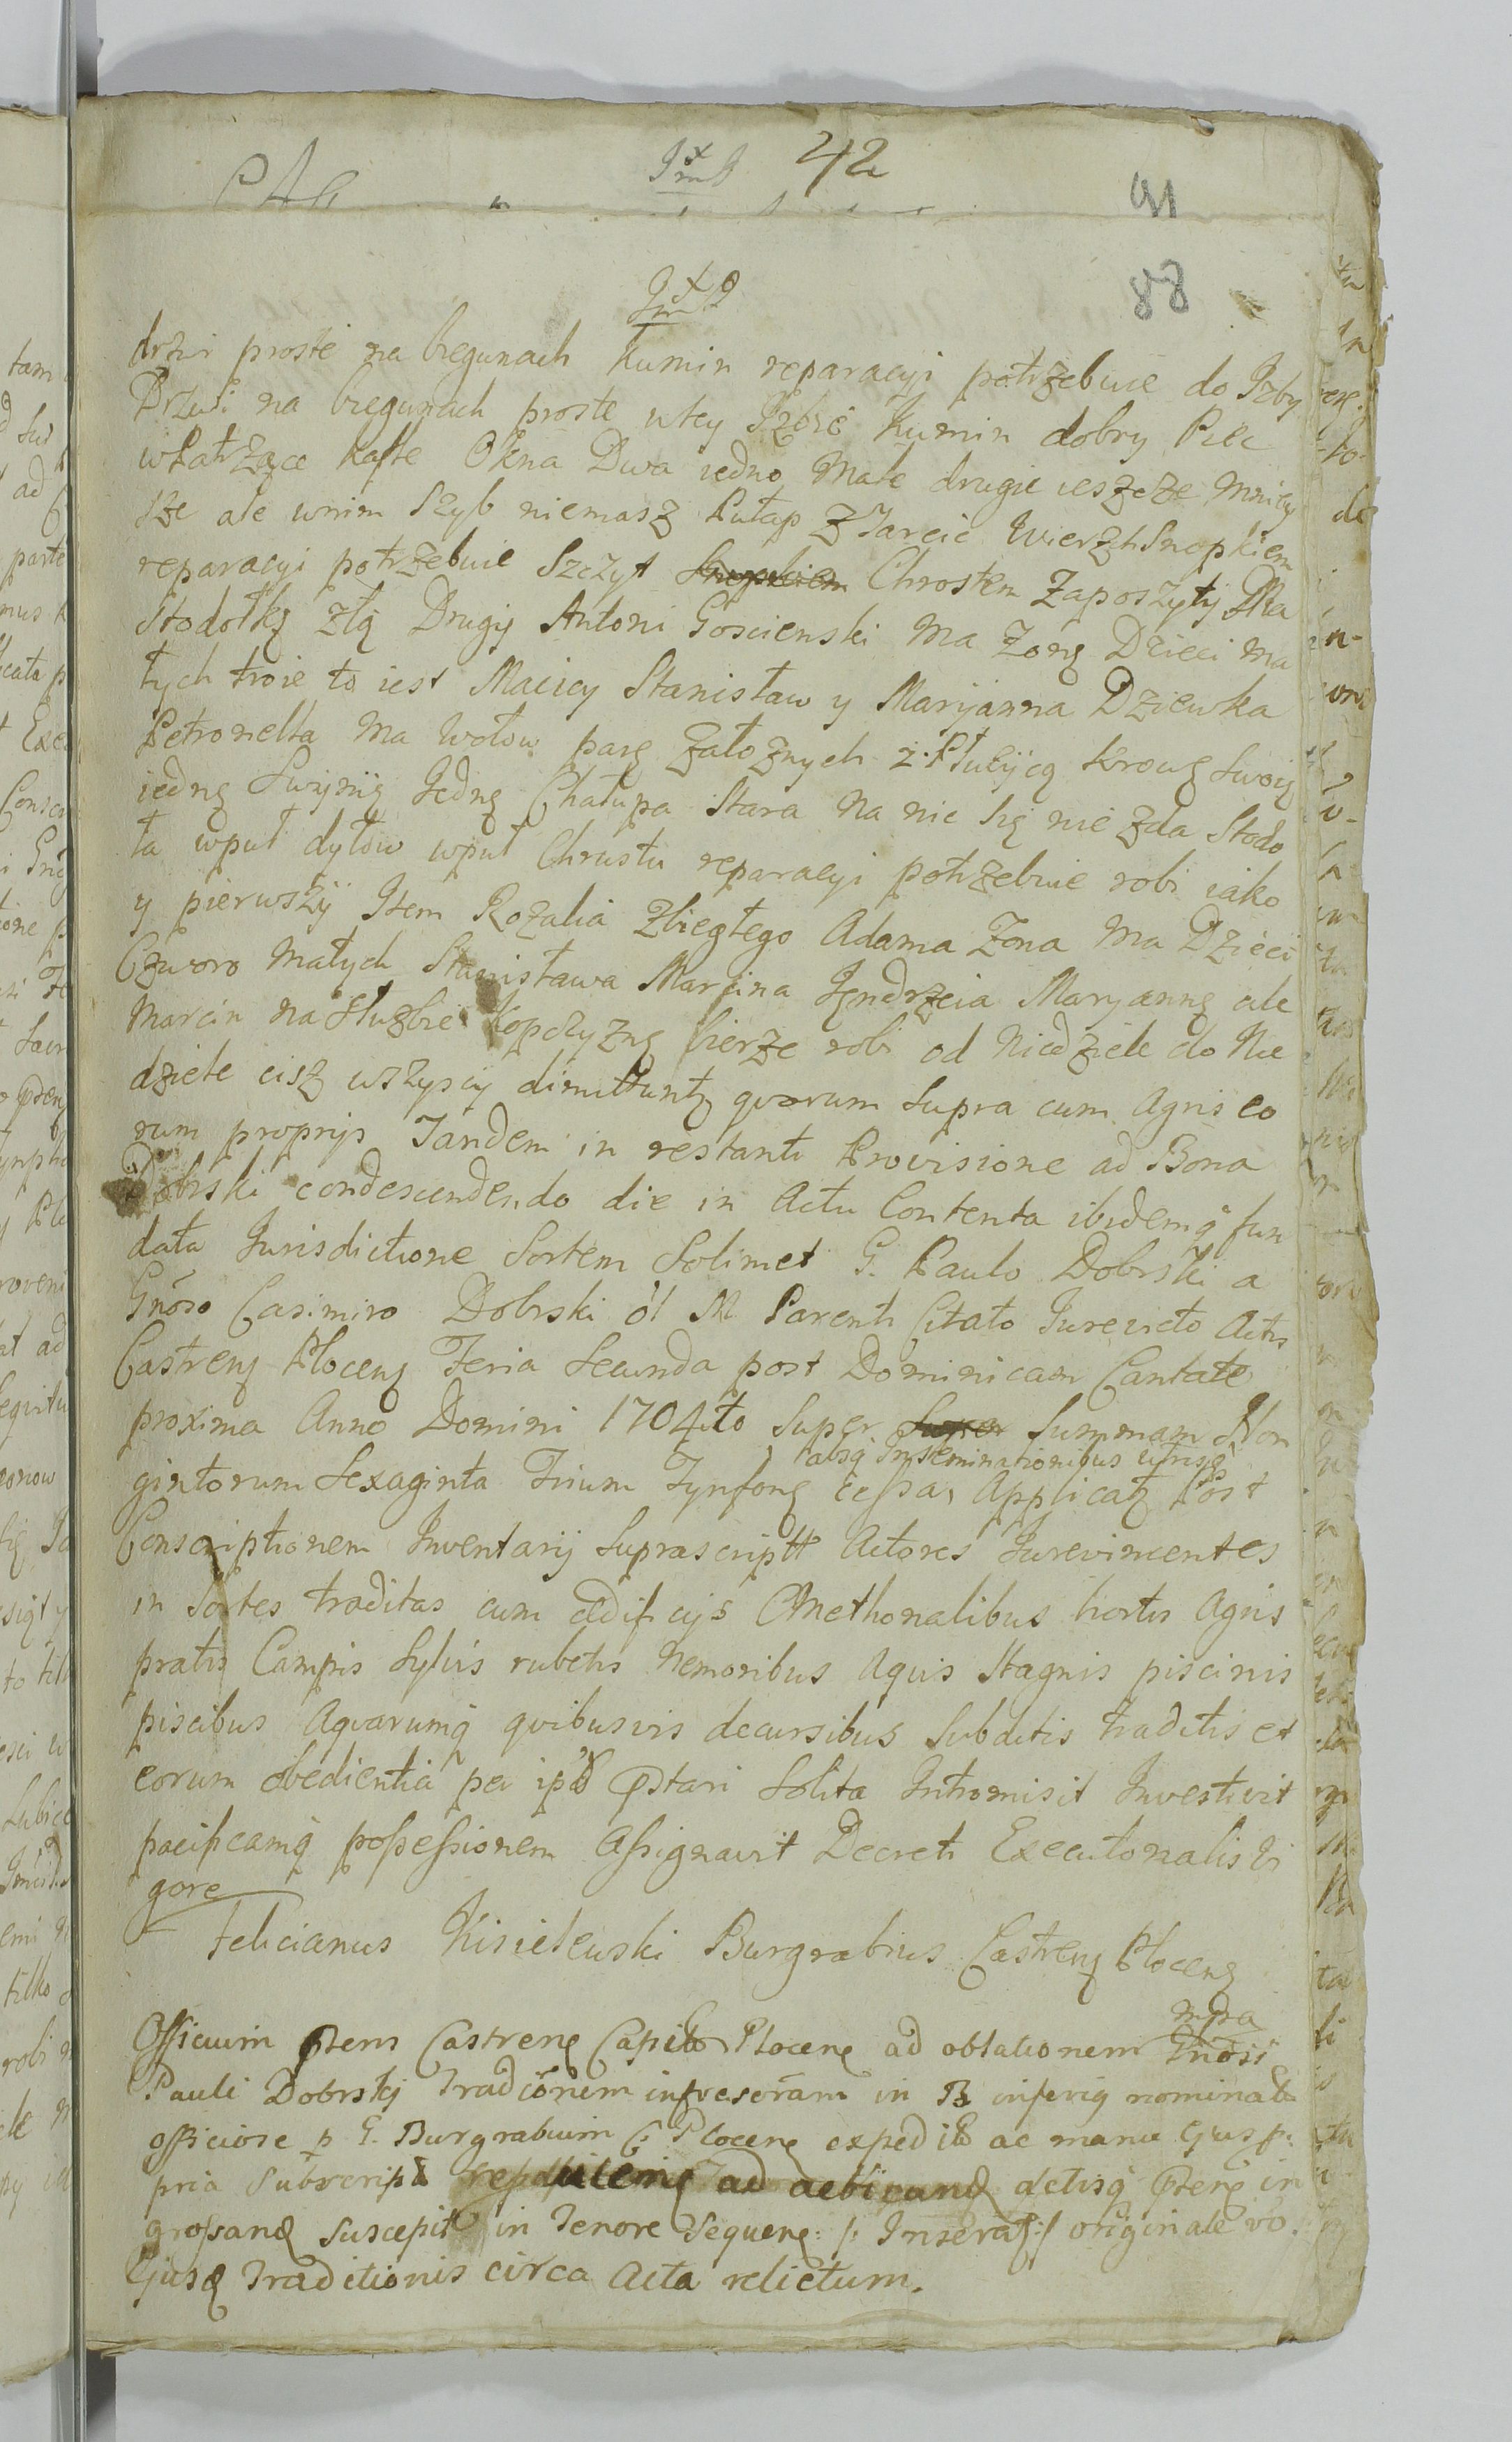 42
91
88
drzwi proste na biegunach Kumin reparacyi potrzebuie do Izby
Drzwi na biegunach proste wtey Izbie Kumin dobry Piec
Okna Dwa iedno Małe drugie ieszcze Mniey
sze ale wnim Szyb niemasz Pułap z Tarcic Wierzch Snopkiem
reparacyi potrzebuie Szczyt Chrostem Zaposzyty Ma
Stodołkę złą Drugi Antoni Goscienski Ma Zonę Dzieci ma
łych troie to iest Maciey Stanisław y Maryanna Dziewka
Petronella Ma Wołow parę Załoznych Krowę Swoię
iednę Swynię Jednę Chałupa Stara Na nic się nie zda Stodo
ła wpuł dylow wpuł Chrustu reparacyi potrzebuie robi iako
y pierwszy Item Rozalia Zbiegłego Adama Zona Ma Dzieci
Czworo Małych Stanisława Marcina Jęndrzeia Maryannę ale
Marcin na Słuzbie Kopczyznę bierze robi od Niedziele do Nie
dziele cisz wszyscy dimittuntz qvorum Supra cum Agris eo
rum proprijs Tandem in restanti Provisione ad Bona
Dobrski condescendendo die in Actu Contenta ibidemq fun
data Jurisdictione Sortem Solimet G. Paulo Dobrski a
Gnoso Casimiro Dobrski ol M Parenti Citato Jurevicto Actis
Castrenz Plocenz Feria Secunda post Dominicam Cantate
proxima Anno Domini 1704to Super Super Summam Non
absq Inseminationibus utrisq
gintorum Sexaginta Trium Tynfonz cessa Applicatz Post
Conscriptionem Inventarij Suprascriptt Actores Jurevincentes
in Sortes traditas cum ædificijs Cmethonalibus hortis Agris
pratis Campis Sylvis rubetis Nemoribus Aquis Stagnis piscinis
piscibus Aqvarumq qvibusvis decursibus Subditis traditis et
eorum obedientia per ip pstari Solita Intromisit Investivit
pacificamq possessionem Assignavit Decreti Executorialis Vi
gore
Felicianus Kisielewski Burgrabius Castrenz Plocenz
mpra
Officium Castrene Capit Plocene ad oblationem Gnosi
Pauli Dobrskj Tradicõnem in inferig nominat
officiose p G. Burgrabium C. Plocene expedit ac manu Ejus p
pria Subscript ad actisq in
grossand suscepit in Tenore Sequene: Inserat originale vo
Ejusd Traditionis circa Acta relictum.